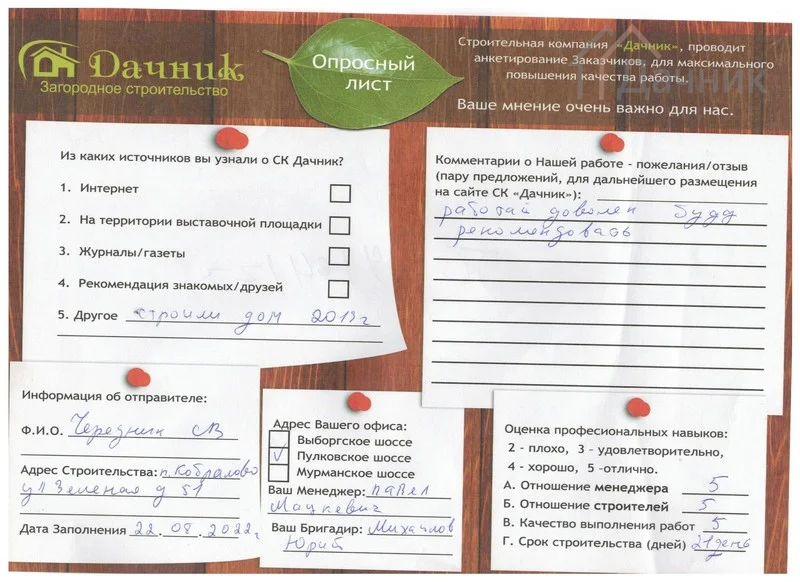 Дачник
Загородное строительство
Опросный
лист
Строительная компания «Дачник», проводит
анкетирование Заказчиков, для максимального
повышения качества работы.
Ваше мнение очень важно для нас.
Дачник
Из каких источников вы узнали о СК Дачник?
1. Интернет
2. На территории выставочной площадки
3. Журналы/газеты
4. Рекомендация знакомых/друзей
5. Другое строили дом 2019г
Комментарии о Нашей работе - пожелания/отзыв
(пару предложений, для дальнейшего размещения
на сайте СК «Дачник»):
работай доволен буду
рекомендовать
Информация об отправителе:
Ф.И.О. Чередник СВ
Адрес Строительства: п. Кобралово
ул Зеленая д 51
Дата Заполнения 22.08.2022г.
Адрес Вашего офиса:
Выборгское шоссе
√ Пулковское шоссе
Мурманское шоссе
Ваш Менеджер: Павел
Мацкевич
Ваш Бригадир: Михайлов
Юрий
Оценка профессиональных навыков:
2 - плохо, 3 - удовлетворительно,
4 - хорошо, 5 -отлично.
А. Отношение менеджера 5
Б. Отношение строителей 5
В. Качество выполнения работ 5
Г. Срок строительства (дней) 21 день